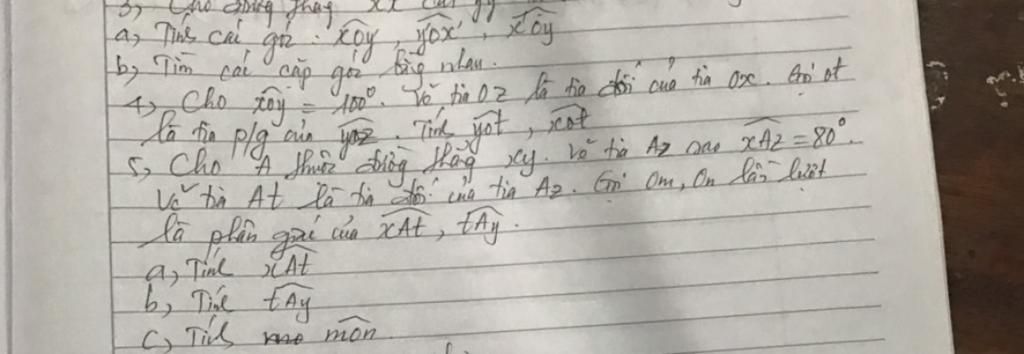 3, Cho đường thẳng xx' cắt yy'
a, Tính các góc : xOy, yOx', x'Oy'
b, Tìm các cặp góc bằng nhau.
4, Cho xOy = 100°. Vẽ tia Oz là tia đối của tia Ox. Gọi Ot
là tia p/g của yOz. Tính yOt, xOt
5, Cho A thuộc đường thẳng xy. Vẽ tia Az sao xAz = 80°.
Vẽ tia At là tia đối của tia Az. Gọi Om, On lần lượt
là phân giác của xAt, tAy.
a, Tính xAt
b, Tính tAy
c, Tính mOn